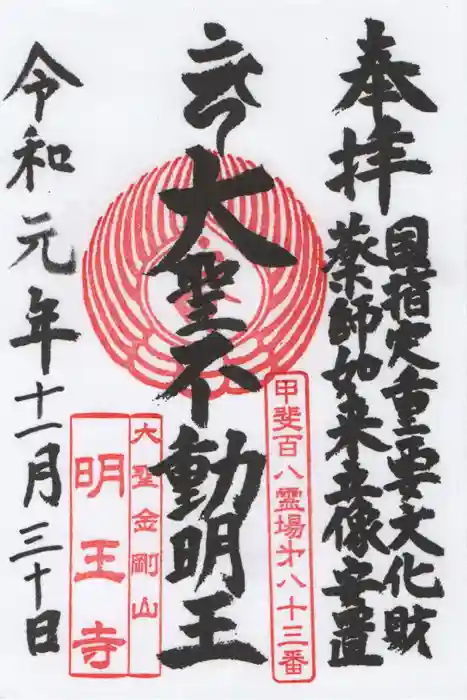 奉拝
国指定重要文化財
薬師如来立像安置
大聖不動明王
甲斐百八霊場第八十三番
大聖金剛山
明王寺
令和元年十一月三十日